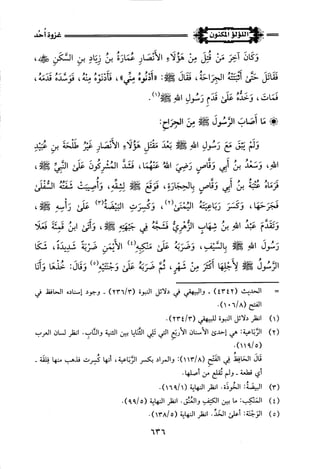 اللؤلؤ المكنون
غزوة أحد
وَكَانَ آخِرَ مَنْ قُتِلَ مِنْ هَؤُلَاءِ الأَنْصَارِ عُمَارَةُ بنُ زِيَادِ بنِ السَّكَنِ ﷺ،
فَقَاتَلَ حَتَّى أَثْبَتَتْهُ الجِرَاحَةُ، فَقَالَ ﷺ: «أَدْنُوهُ مِنِّي»، فَأَدْنَوْهُ مِنْهُ، فَوَسَّدَهُ قَدَمَهُ،
فَمَاتَ، وَخَدُّهُ عَلَى قَدَمِ رَسُولِ اللهِ ﷺ(١).
* مَا أَصَابَ الرَّسُولَ ﷺ مِنَ الجِرَاحِ:
وَلَمْ يَبْقَ مَعَ رَسُولِ اللهِ ﷺ بَعْدَ مَقْتَلِ هَؤُلَاءِ الأَنْصَارِ غَيْرُ طَلْحَةَ بنِ عُبَيْدِ
اللهِ، وَسَعْدِ بنِ أَبِي وَقَّاصٍ رَضِيَ اللهُ عَنْهُمَا، فَشَدَّ المُشْرِكُونَ عَلَى النَّبِيِّ ﷺ،
فَرَمَاهُ عُتْبَةُ بنُ أَبِي وَقَّاصٍ بِالحِجَارَةِ، فَوَقَعَ ﷺ لِشِقِّهِ، وَأُصِيبَتْ شَفَتُهُ السُّفْلَى
فَجَرَحَهَا، وَكَسَرَ رَبَاعِيَتَهُ اليُمْنَى(٢)، وَكُسِرَتِ البَيْضَةُ(٣) عَلَى رَأْسِهِ ﷺ،
وَتَقَدَّمَ عَبْدُ اللهِ بنُ شِهَابٍ الزُّهْرِيُّ فَشَجَّهُ فِي جَبْهَتِهِ ﷺ، وَأَتَى ابنُ قَمِئَةَ فَعَلَا
رَسُولَ اللهِ ﷺ بِالسَّيْفِ، وَضَرَبَهُ عَلَى مَنْكِبِهِ(٤) الأَيْمَنِ ضَرْبَةً شَدِيدَةً، شَكَا
الرَّسُولُ ﷺ لِأَجْلِهَا أَكْثَرَ مِنْ شَهْرٍ، ثُمَّ ضَرَبَهُ عَلَى وَجْنَتِهِ(٥) ﷺ وَقَالَ: خُذْهَا وَأَنَا
= الحديث (٤٣٤٢) ـ والبيهقي في دلائل النبوة (٢٣٦/٣) ـ وجود إسناده الحافظ في
الفتح (١٠٦/٨).
(١) انظر دلائل النبوة للبيهقي (٢٣٤/٣).
(٢) الرَّبَاعِيَة: هي إحدى الأسنان الأربع التي تلي الثنايا بين الثنية والناب. انظر لسان العرب
(١١٩/٥).
قَالَ الحَافِظُ في الفَتْحِ (١١٣/٨): والمراد بكسر الرَّبَاعِيَة، أنها كُسِرت فذهب منها فِلقة ـ
أي قطعة ـ ولم تُقلع من أصلها.
(٣) البيضَة: الخُوذَة. انظر النهاية (١٦٩/١).
(٤) المَنْكِب: ما بين الكَتِفِ والعُنُقِ. انظر النهاية (٩٩/٥).
(٥) الوَجْنَة: أعلى الخَدِّ. انظر النهاية (١٣٨/٥).
٦٣٦